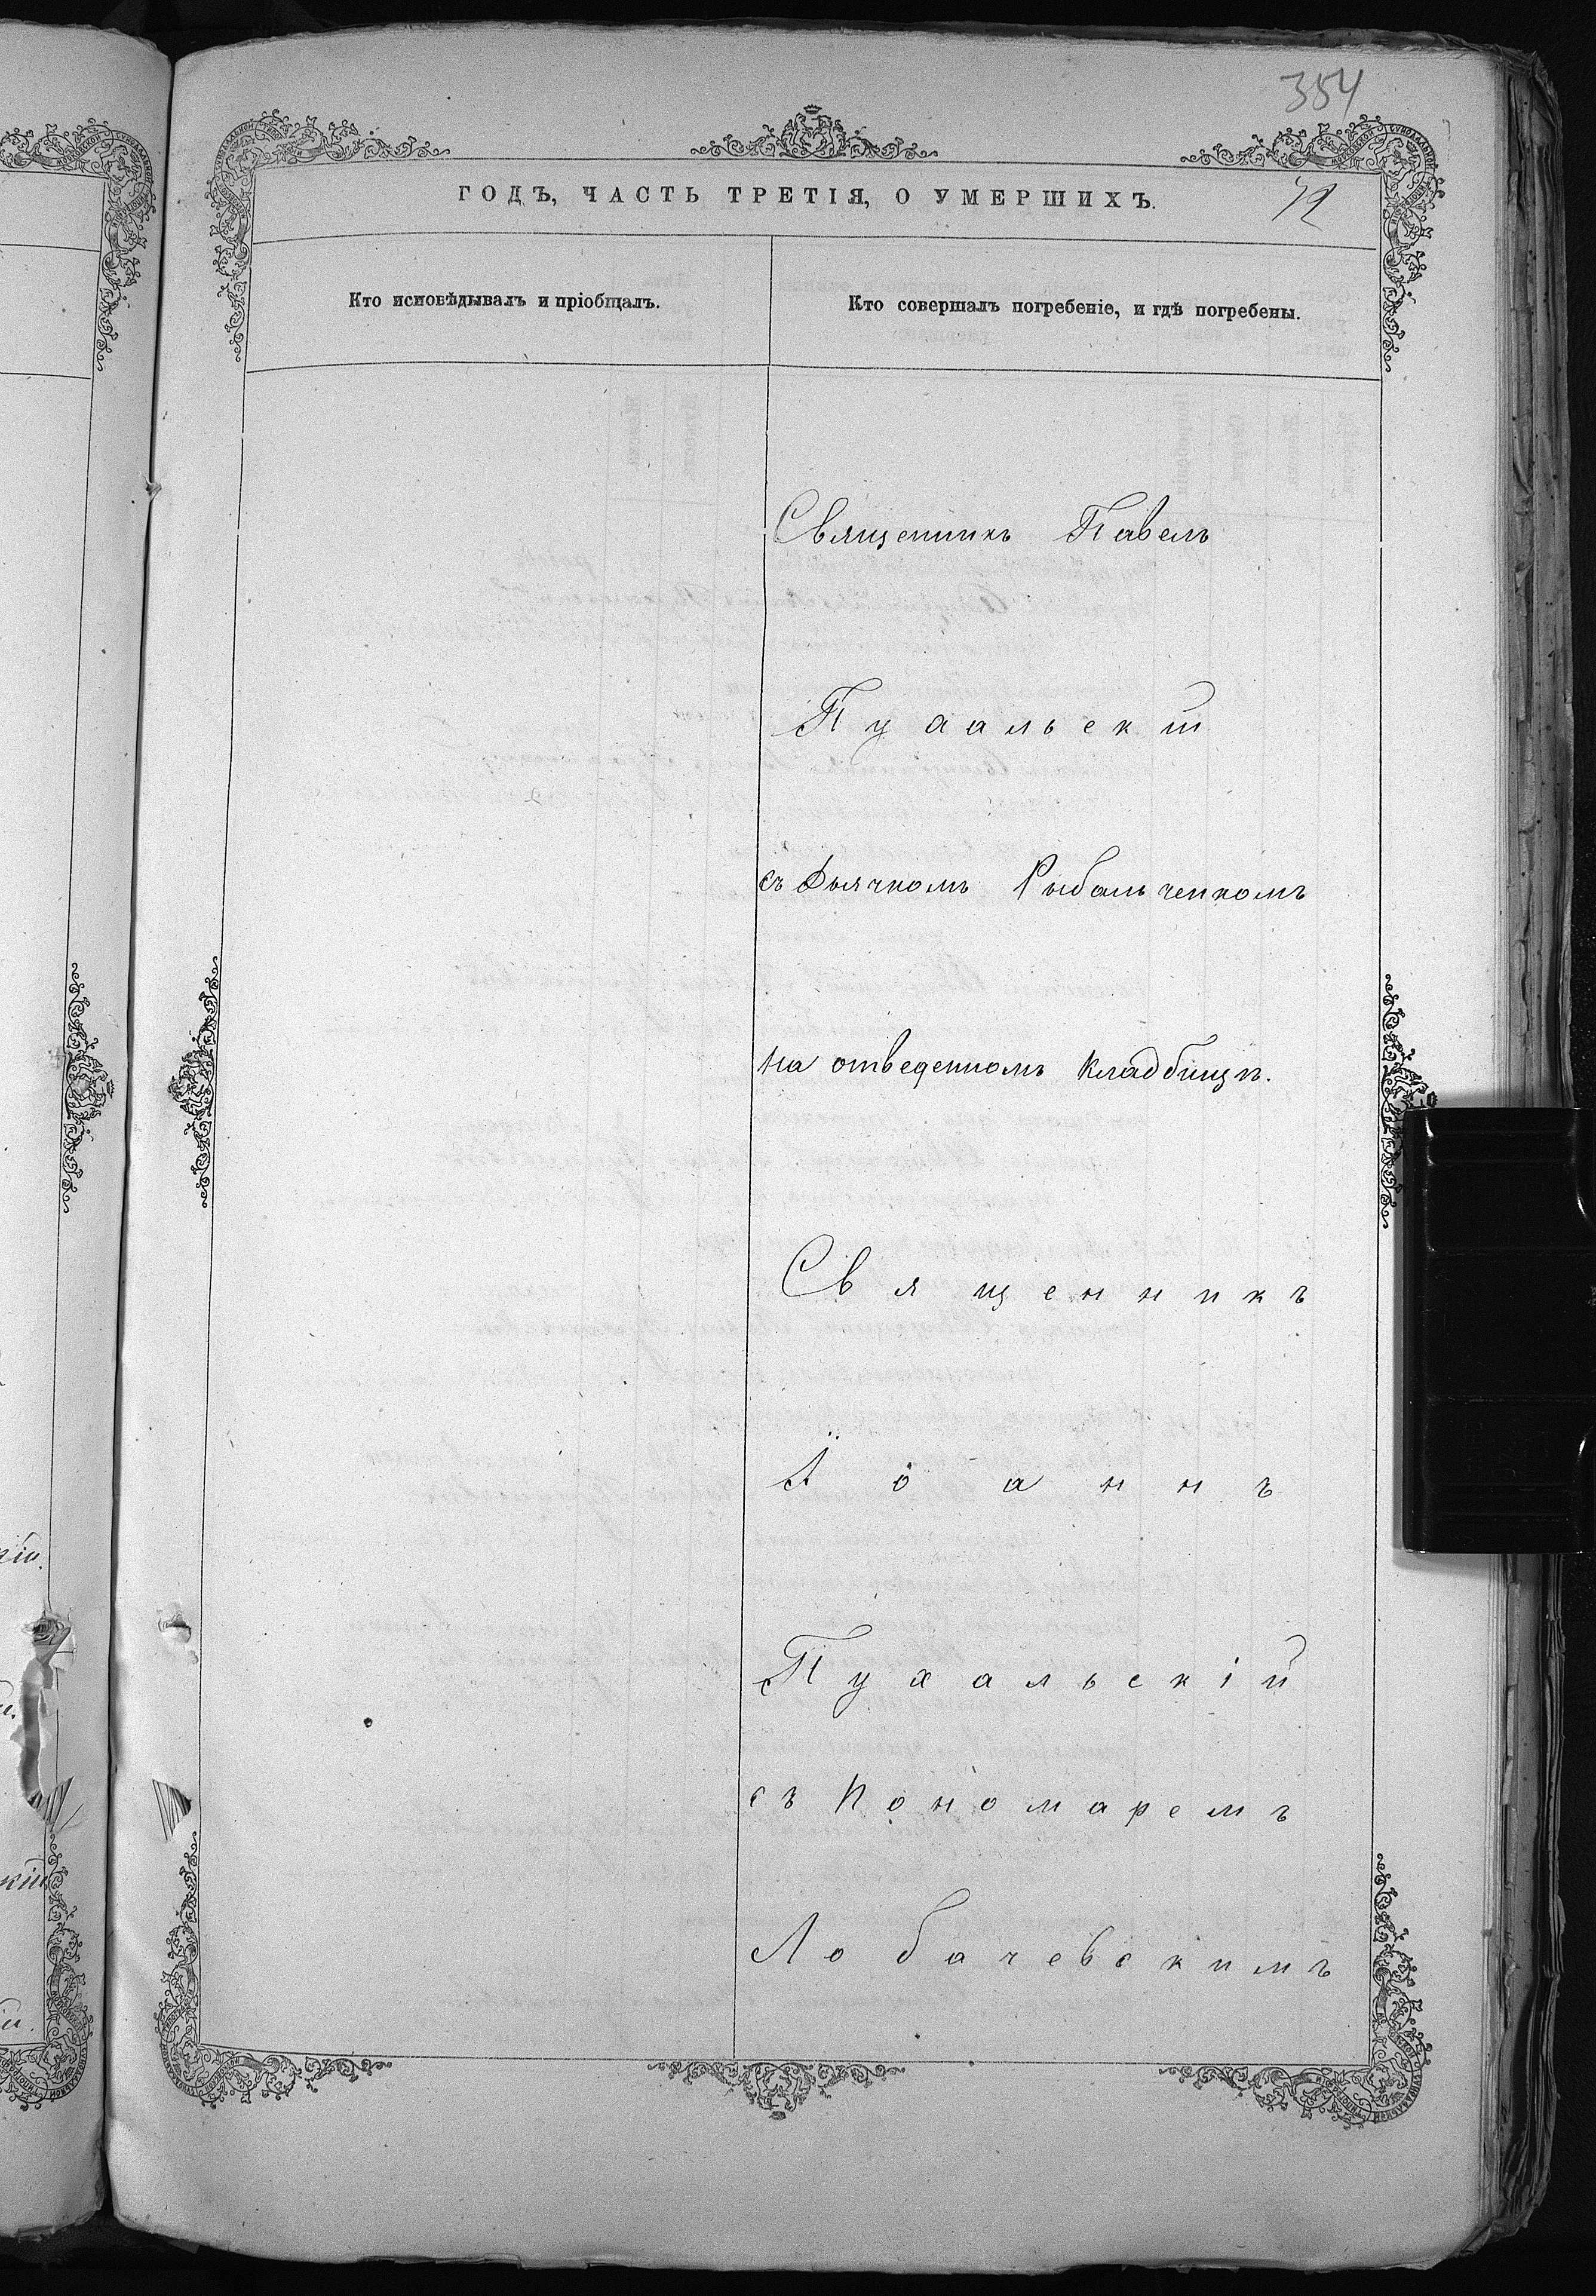 354
ГОДЪ, ЧАСТЬ ТРЕТІЯ, О УМЕРШИХЪ.
Кто исповѣдывалъ и пріобщалъ.
Кто совершалъ погребеніе, и гдѣ погребены.
Священникъ Павелъ
Пухальскій
съ Дьячкомъ Рыбальченкомъ
на отведенномъ кладбищѣ.
Священникъ
Іоаннъ
Пухальскій
съ Пономаремъ
Лобачевскимъ